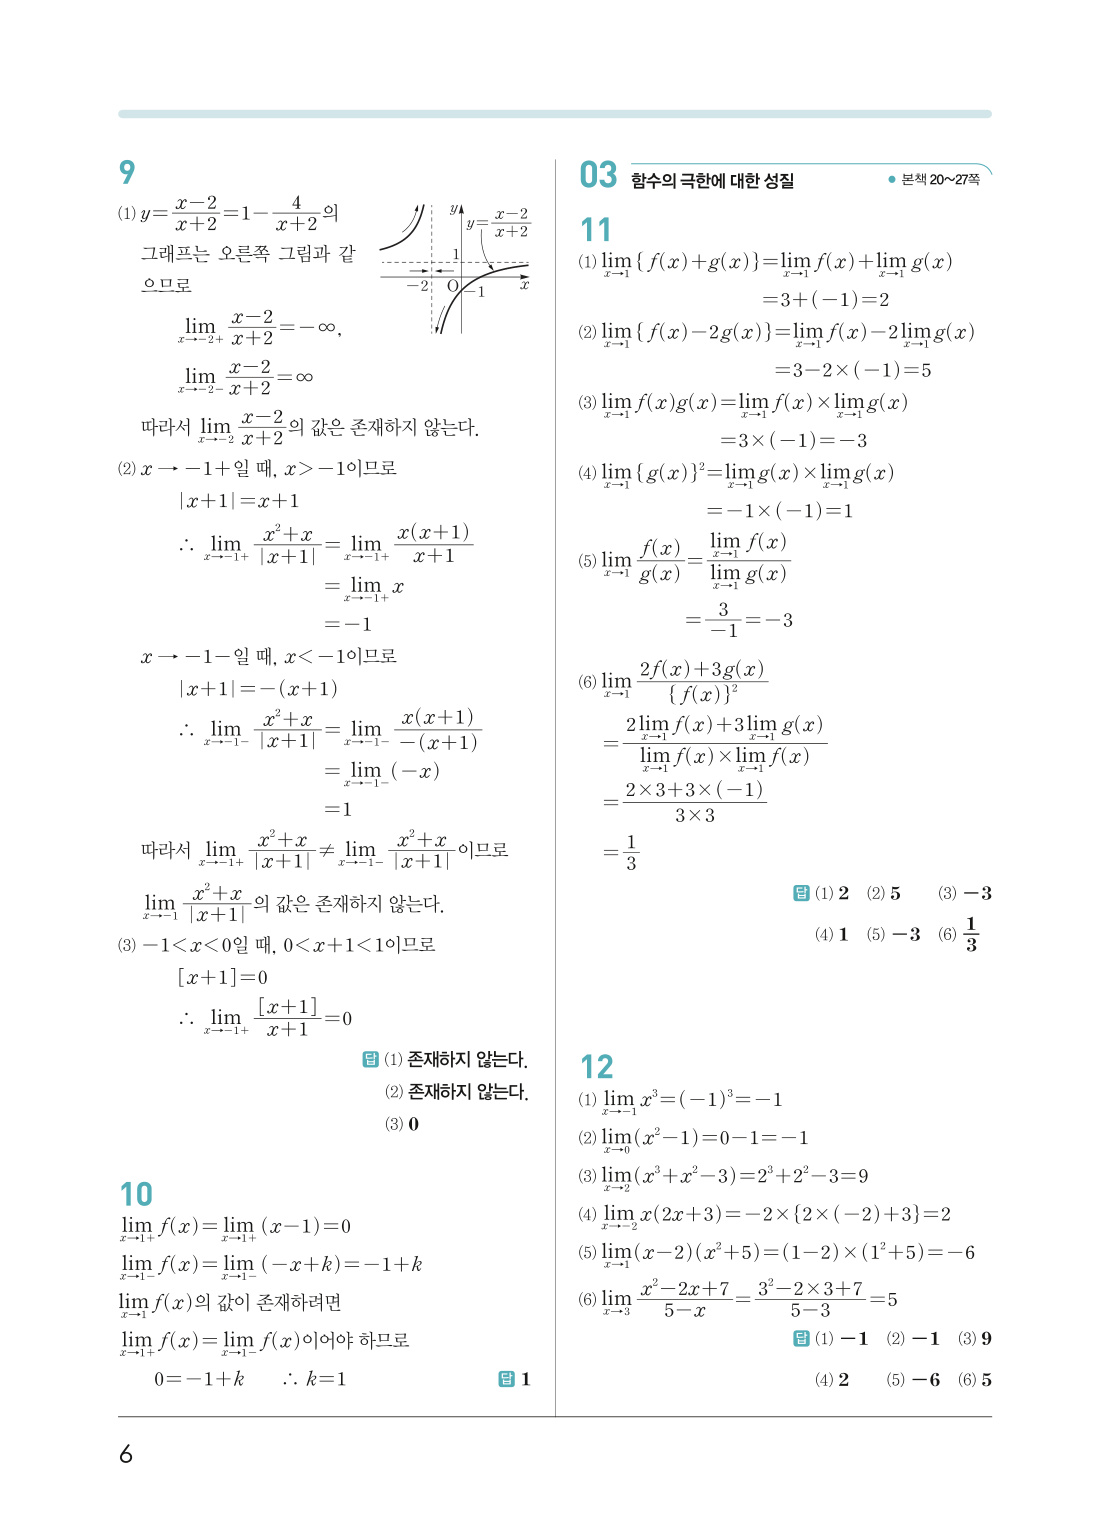 9
(1) y=(x-2)/(x+2)=1-4/(x+2)의
그래프는 오른쪽 그림과 같
으므로
y
y=(x-2)/(x+2)
1
-2
O
-1
x
lim_{x→-2+} (x-2)/(x+2)=-∞,
lim_{x→-2-} (x-2)/(x+2)=∞
따라서 lim_{x→-2} (x-2)/(x+2)의 값은 존재하지 않는다.
(2) x → -1+일 때, x>-1이므로
|x+1|=x+1
∴ lim_{x→-1+} (x²+x)/|x+1|=lim_{x→-1+} x(x+1)/(x+1)
=lim_{x→-1+} x
=-1
x → -1-일 때, x<-1이므로
|x+1|=-(x+1)
∴ lim_{x→-1-} (x²+x)/|x+1|=lim_{x→-1-} x(x+1)/{-(x+1)}
=lim_{x→-1-} (-x)
=1
따라서 lim_{x→-1+} (x²+x)/|x+1|≠lim_{x→-1-} (x²+x)/|x+1|이므로
lim_{x→-1} (x²+x)/|x+1|의 값은 존재하지 않는다.
(3) -1<x<0일 때, 0<x+1<1이므로
[x+1]=0
∴ lim_{x→-1+} [x+1]/(x+1)=0
답 (1) 존재하지 않는다.
(2) 존재하지 않는다.
(3) 0
10
lim_{x→1+} f(x)=lim_{x→1+} (x-1)=0
lim_{x→1-} f(x)=lim_{x→1-} (-x+k)=-1+k
lim_{x→1} f(x)의 값이 존재하려면
lim_{x→1+} f(x)=lim_{x→1-} f(x)이어야 하므로
0=-1+k ∴ k=1 답 1
03 함수의 극한에 대한 성질 ● 본책 20~27쪽
11
(1) lim_{x→1} {f(x)+g(x)}=lim_{x→1} f(x)+lim_{x→1} g(x)
=3+(-1)=2
(2) lim_{x→1} {f(x)-2g(x)}=lim_{x→1} f(x)-2lim_{x→1} g(x)
=3-2×(-1)=5
(3) lim_{x→1} f(x)g(x)=lim_{x→1} f(x)×lim_{x→1} g(x)
=3×(-1)=-3
(4) lim_{x→1} {g(x)}²=lim_{x→1} g(x)×lim_{x→1} g(x)
=-1×(-1)=1
(5) lim_{x→1} f(x)/g(x)=lim_{x→1} f(x)/lim_{x→1} g(x)
=3/-1=-3
(6) lim_{x→1} (2f(x)+3g(x))/{f(x)}²
=(2lim_{x→1} f(x)+3lim_{x→1} g(x))/(lim_{x→1} f(x)×lim_{x→1} f(x))
=(2×3+3×(-1))/(3×3)
=1/3
답 (1) 2 (2) 5 (3) -3
(4) 1 (5) -3 (6) 1/3
12
(1) lim_{x→-1} x³=(-1)³=-1
(2) lim_{x→0} (x²-1)=0-1=-1
(3) lim_{x→2} (x³+x²-3)=2³+2²-3=9
(4) lim_{x→-2} x(2x+3)=-2×{2×(-2)+3}=2
(5) lim_{x→1} (x-2)(x²+5)=(1-2)×(1²+5)=-6
(6) lim_{x→3} (x²-2x+7)/(5-x)=(3²-2×3+7)/(5-3)=5
답 (1) -1 (2) -1 (3) 9
(4) 2 (5) -6 (6) 5
6